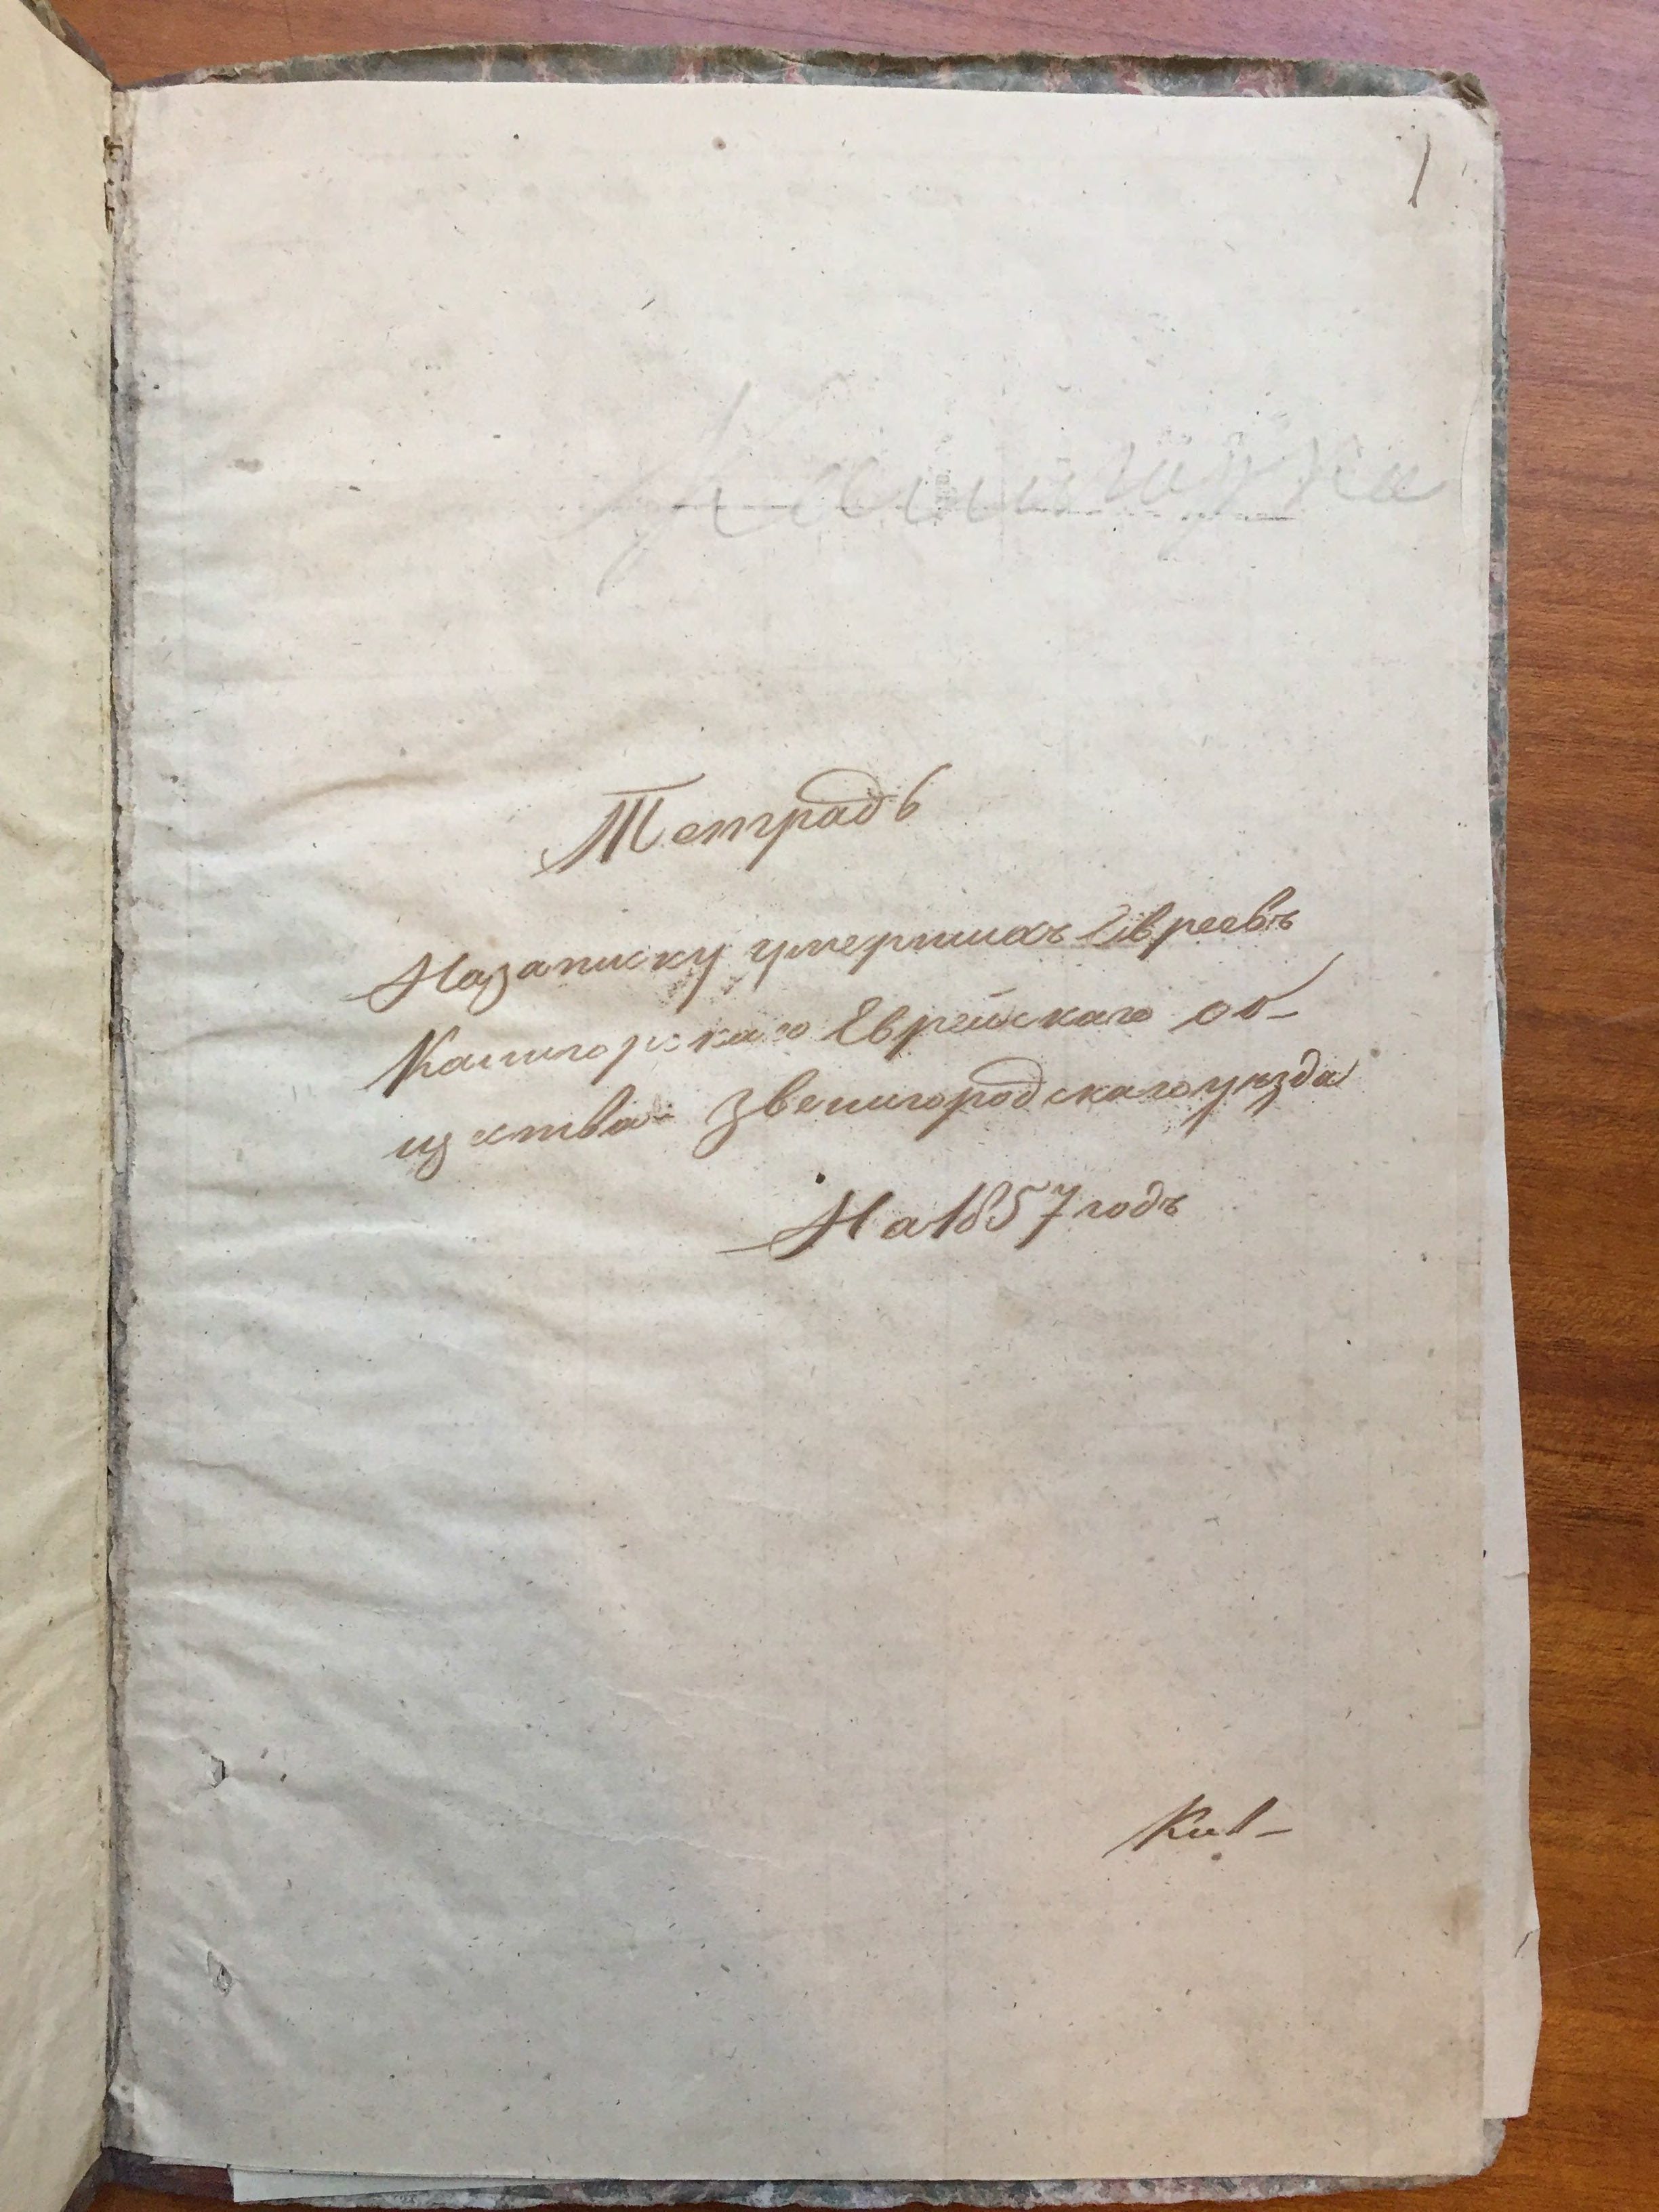 1
Калигорка
Тетрадь
На записку умершихъ Евреевъ
Калигорскаго Еврейскаго об-
щества Звенигородскаго уѣзда
На 1857 годъ